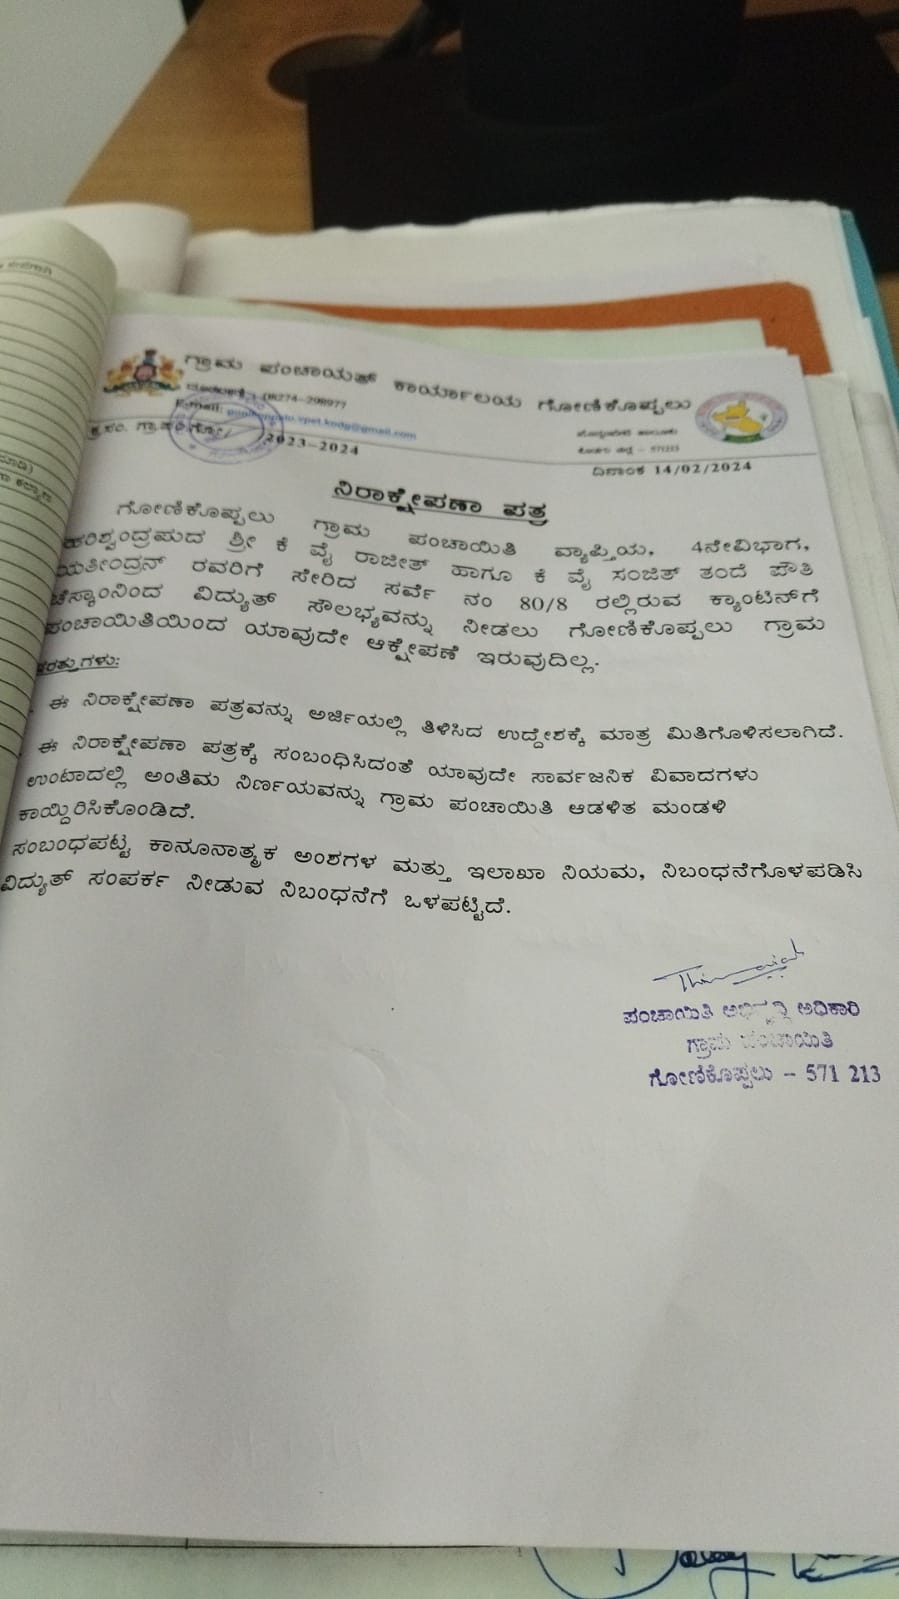 ಗ್ರಾಮ ಪಂಚಾಯತ್ ಕಾರ್ಯಾಲಯ ಗೋಣಿಕೊಪ್ಪಲು
ದೂರವಾಣಿ : 08274-298977
E-mail:
2023-2024
ದಿನಾಂಕ 14/02/2024
ನಿರಾಕ್ಷೇಪಣಾ ಪತ್ರ
ಗೋಣಿಕೊಪ್ಪಲು ಗ್ರಾಮ ಪಂಚಾಯಿತಿ ವ್ಯಾಪ್ತಿಯ, 4ನೇವಿಭಾಗ,
ಹರಿಶ್ಚಂದ್ರಪುದ ಶ್ರೀ ಕೆ ವೈ ರಾಜೀತ್ ಹಾಗೂ ಕೆ ವೈ ಸಂಜಿತ್ ತಂದೆ ಪೌತಿ
ಯತೀಂದ್ರನ್ ರವರಿಗೆ ಸೇರಿದ ಸರ್ವೆ ನಂ 80/8 ರಲ್ಲಿರುವ ಕ್ಯಾಂಟಿನ್‌ಗೆ
ಚೆಸ್ಕಾಂನಿಂದ ವಿದ್ಯುತ್ ಸೌಲಭ್ಯವನ್ನು ನೀಡಲು ಗೋಣಿಕೊಪ್ಪಲು ಗ್ರಾಮ
ಪಂಚಾಯಿತಿಯಿಂದ ಯಾವುದೇ ಆಕ್ಷೇಪಣೆ ಇರುವುದಿಲ್ಲ.
ಷರತ್ತುಗಳು:
ಈ ನಿರಾಕ್ಷೇಪಣಾ ಪತ್ರವನ್ನು ಅರ್ಜಿಯಲ್ಲಿ ತಿಳಿಸಿದ ಉದ್ದೇಶಕ್ಕೆ ಮಾತ್ರ ಮಿತಿಗೊಳಿಸಲಾಗಿದೆ.
ಈ ನಿರಾಕ್ಷೇಪಣಾ ಪತ್ರಕ್ಕೆ ಸಂಬಂಧಿಸಿದಂತೆ ಯಾವುದೇ ಸಾರ್ವಜನಿಕ ವಿವಾದಗಳು
ಉಂಟಾದಲ್ಲಿ ಅಂತಿಮ ನಿರ್ಣಯವನ್ನು ಗ್ರಾಮ ಪಂಚಾಯಿತಿ ಆಡಳಿತ ಮಂಡಳಿ
ಕಾಯ್ದಿರಿಸಿಕೊಂಡಿದೆ.
ಸಂಬಂಧಪಟ್ಟ ಕಾನೂನಾತ್ಮಕ ಅಂಶಗಳ ಮತ್ತು ಇಲಾಖಾ ನಿಯಮ, ನಿಬಂಧನೆಗೊಳಪಡಿಸಿ
ವಿದ್ಯುತ್ ಸಂಪರ್ಕ ನೀಡುವ ನಿಬಂಧನೆಗೆ ಒಳಪಟ್ಟಿದೆ.
ಪಂಚಾಯಿತಿ ಅಭಿವೃದ್ಧಿ ಅಧಿಕಾರಿ
ಗ್ರಾಮ ಪಂಚಾಯಿತಿ
ಗೋಣಿಕೊಪ್ಪಲು - 571 213